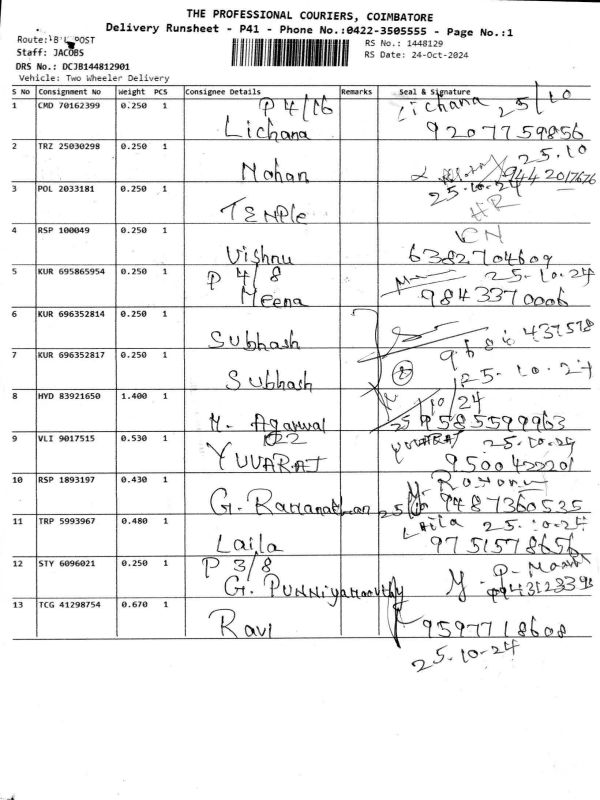 THE PROFESSIONAL COURIERS, COIMBATORE
Delivery Runsheet - P41 - Phone No.:0422-3505555 - Page No.:1
Route: POST
RS No.: 1448129
Staff: JACOBS
RS Date: 24-Oct-2024
DRS No.: DCJB144812901
Vehicle: Two Wheeler Delivery
S No Consignment No Weight PCS Consignee Details Remarks Seal & Signature
1 CMD 70162399 0.250 1 P 4/16 Lichana Lichana 25/10
9207759856
2 TRZ 25030298 0.250 1 Mohan 25.10
9442017676
25.10.24
3 POL 2033181 0.250 1 TEMPle HR
4 RSP 100049 0.250 1 Vishnu CN
6382704609
5 KUR 695865954 0.250 1 P 4/8 Meena 25-10-24
9843370006
6 KUR 696352814 0.250 1 Subhash
437578
7 KUR 696352817 0.250 1 Subhash 2
25-10-24
8 HYD 83921650 1.400 1 M. Agarwal 25/10/24
9585599963
9 VLI 9017515 0.530 1 YUVARAJ YUVARAJ 25.10.24
9500422201
10 RSP 1893197 0.430 1 G. Ramanathan
9487360535
11 TRP 5993967 0.480 1 Laila Laila 25.10.24
9751578656
12 STY 6096021 0.250 1 P 3/8 G. PUNNiyamoorthy
13 TCG 41298754 0.670 1 Ravi 9597718608
25.10.24